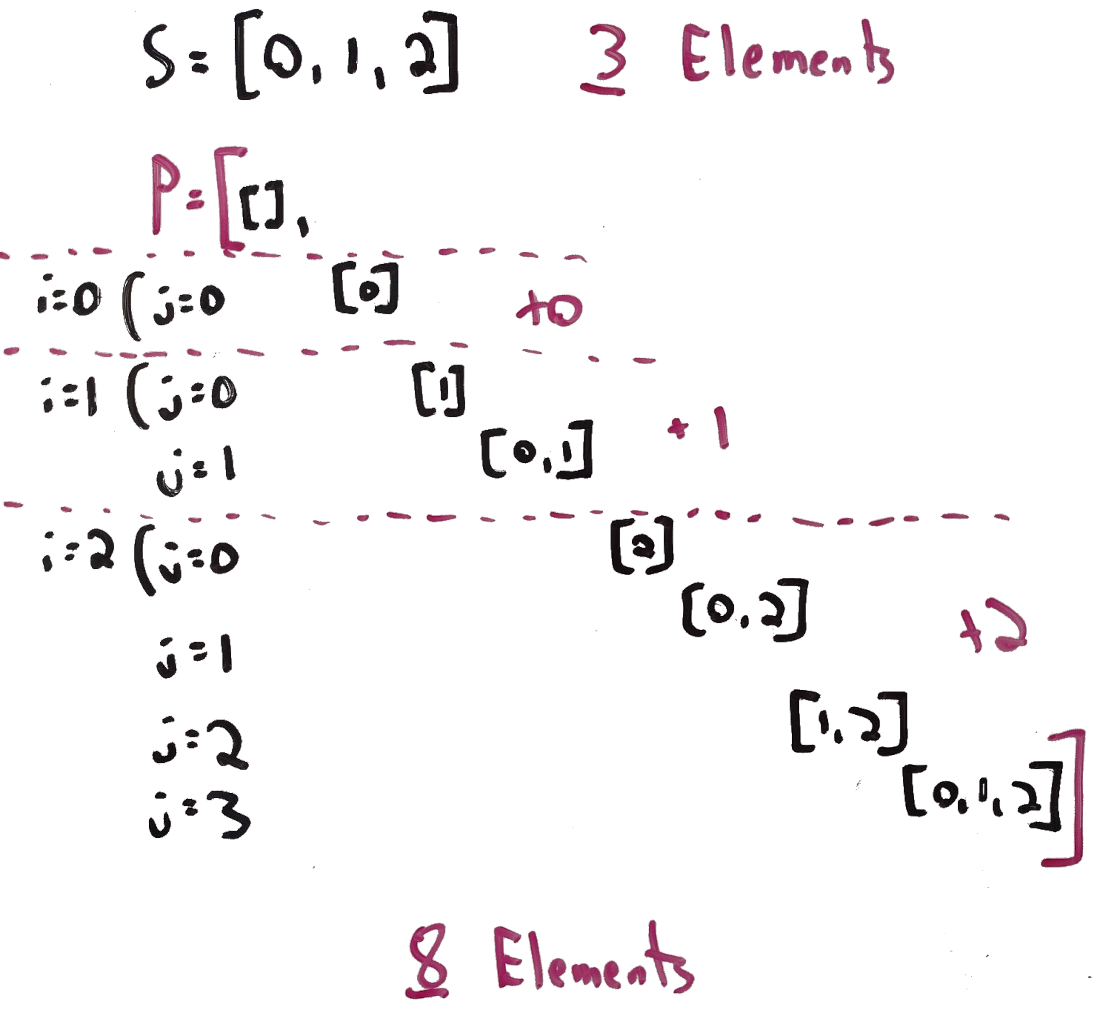 S=[0,1,2] 3 Elements
P=[[],
i=0 (j=0 [0] +0
i=1 (j=0 [1]
j=1 [0,1] +1
i=2 (j=0 [2]
[0,2]
j=1 +2
j=2 [1,2]
j=3 [0,1,2]]
8 Elements